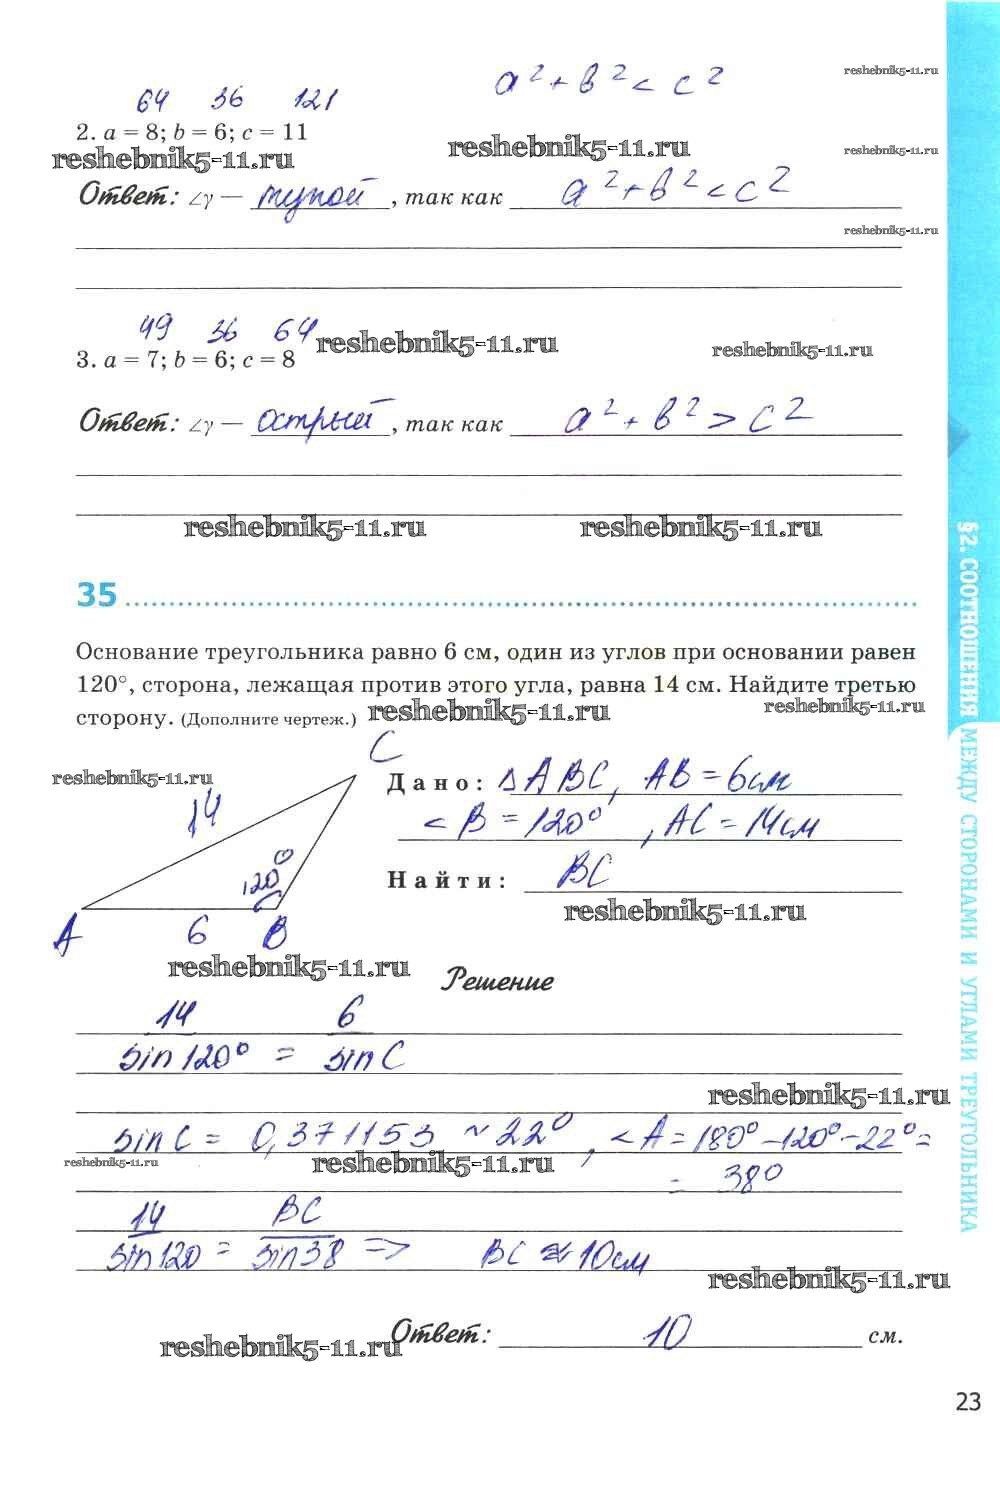 a² + b² < c²
reshebnik5-11.ru
64 36 121
2. a = 8; b = 6; c = 11
reshebnik5-11.ru
reshebnik5-11.ru
reshebnik5-11.ru
Ответ: ∠γ — тупой, так как a² + b² < c²
reshebnik5-11.ru
49 36 64
reshebnik5-11.ru
reshebnik5-11.ru
3. a = 7; b = 6; c = 8
Ответ: ∠γ — острый, так как a² + b² > c²
reshebnik5-11.ru
reshebnik5-11.ru
§2. СООТНОШЕНИЯ МЕЖДУ СТОРОНАМИ И УГЛАМИ ТРЕУГОЛЬНИКА
35
Основание треугольника равно 6 см, один из углов при основании равен
120°, сторона, лежащая против этого угла, равна 14 см. Найдите третью
сторону. (Дополните чертеж.)
reshebnik5-11.ru
reshebnik5-11.ru
C
reshebnik5-11.ru
14
120°
A 6 B
Дано: △ABC, AB = 6см
< B = 120°, AC = 14см
Найти: BC
reshebnik5-11.ru
reshebnik5-11.ru
Решение
14 6
sin 120° = sin C
reshebnik5-11.ru
sin C = 0,371153 ~ 22°, < A = 180° – 120° – 22° =
= 38°
reshebnik5-11.ru
reshebnik5-11.ru
14 BC
sin 120 = sin 38 => BC ≈ 10см
reshebnik5-11.ru
Ответ: 10 см.
reshebnik5-11.ru
23